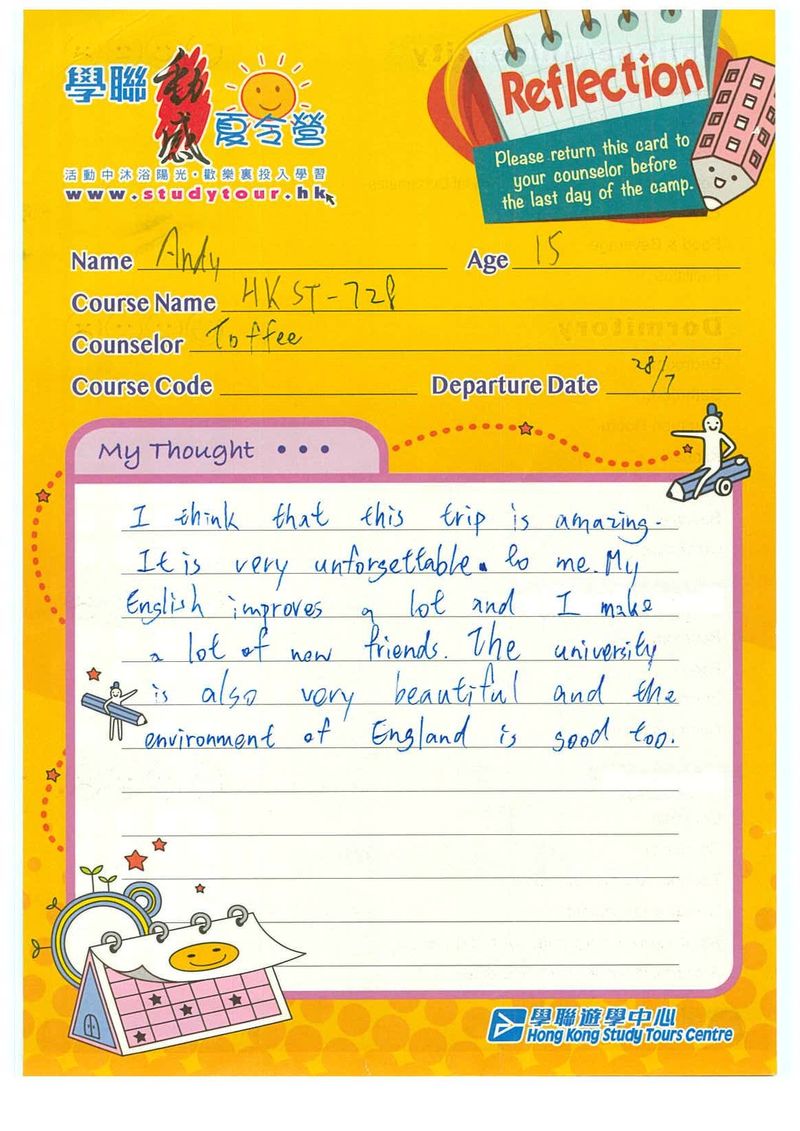 學聯 動感 夏令營
活動中沐浴陽光·歡樂裏投入學習
www.studytour.hk
Reflection
Please return this card to
your counselor before
the last day of the camp.
Name Andy Age 15
Course Name HKST-728
Counselor Toffee
Course Code Departure Date 28/7
My Thought • • •
I think that this trip is amazing.
It is very unforgettable. to me. My
English improves a lot and I make
a lot of new friends. The university
is also very beautiful and the
environment of England is good too.
學聯遊學中心
Hong Kong Study Tours Centre